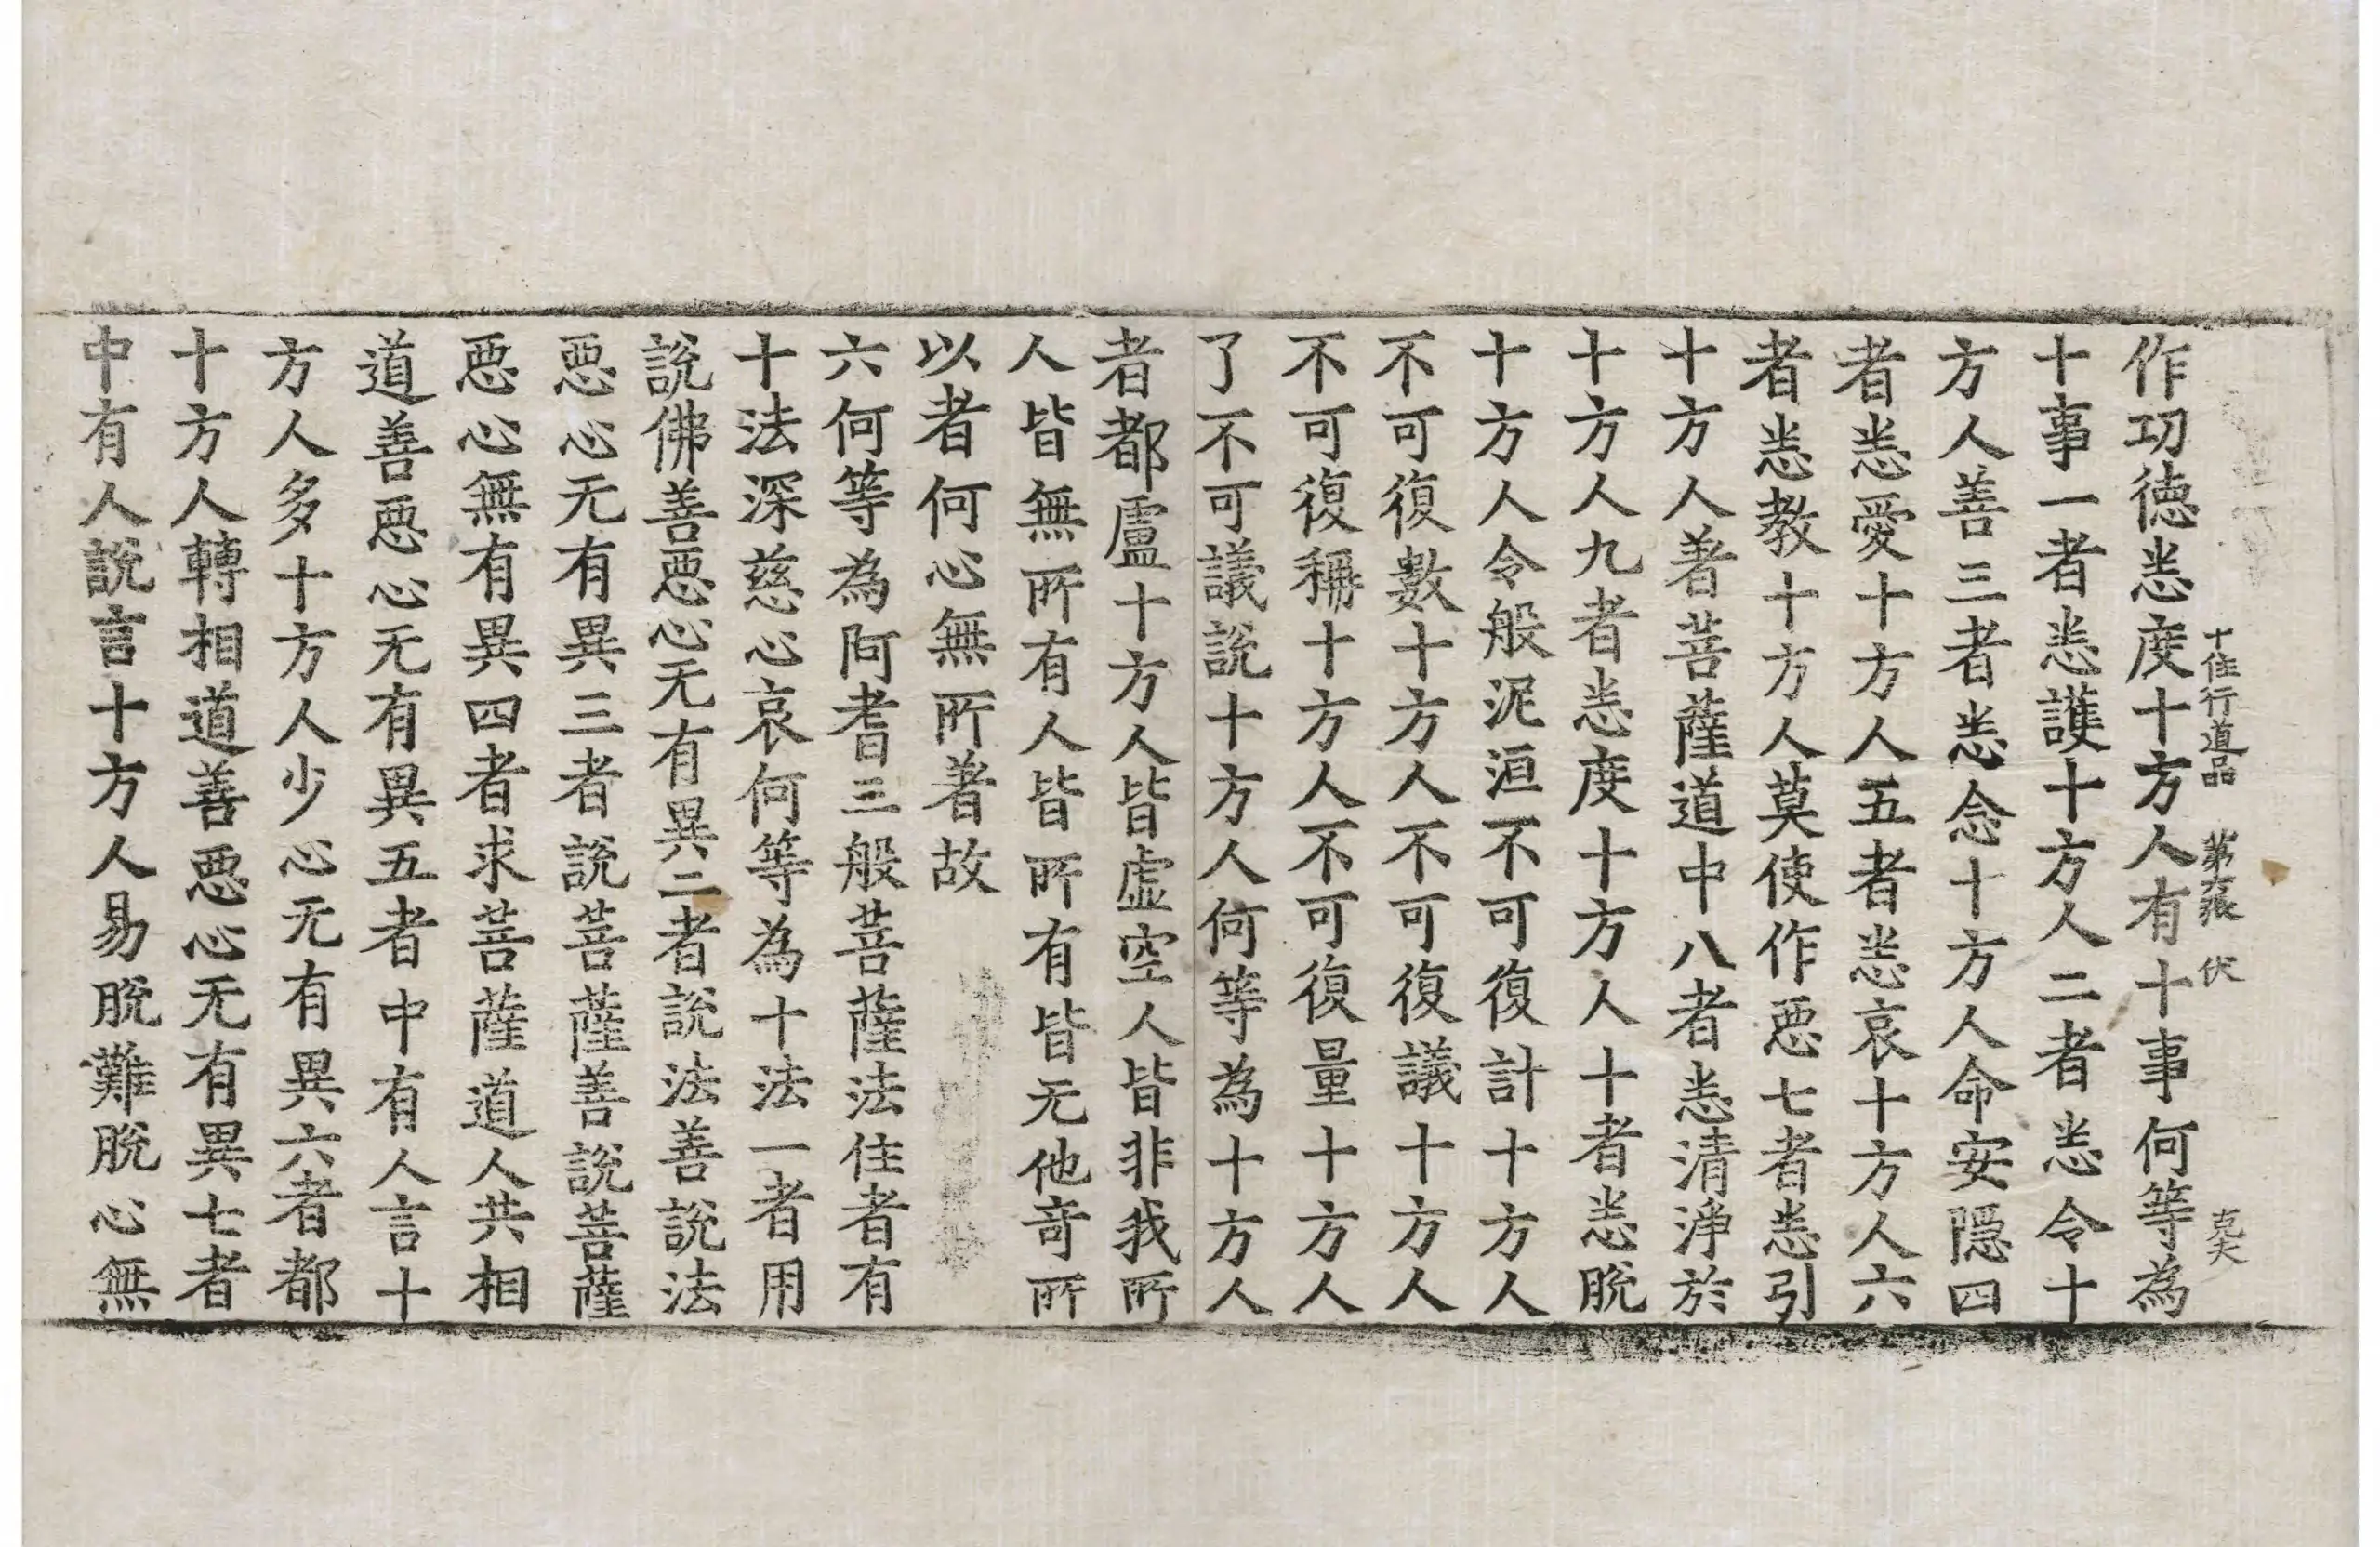 作功德恙度十方人有十事何等為
十住行道品 第張 伏 克大
十事一者恙護十方人二者恙令十
方人善三者恙念十方人命安隱四
者恙愛十方人五者恙哀十方人六
者恙教十方人莫使作惡七者恙引
十方人著菩薩道中八者恙清淨於
十方人九者恙度十方人十者恙脫
十方人令般泥洹不可復計十方人
不可復數十方人不可復議十方人
不可復稱十方人不可復量十方人
了不可議說十方人何等為十方人
者都盧十方人皆虛空人皆非我所
人皆無所有人皆所有皆无他奇所
以者何心無所著故
六何等為阿耆三般菩薩法住者有
十法深慈心哀何等為十法一者用
說佛善惡心无有異二者說法善說法
惡心无有異三者說菩薩善說菩薩
惡心無有異四者求菩薩道人共相
道善惡心无有異五者中有人言十
方人多十方人少心无有異六者都
十方人轉相道善惡心无有異七者
中有人說言十方人易脫難脫心無